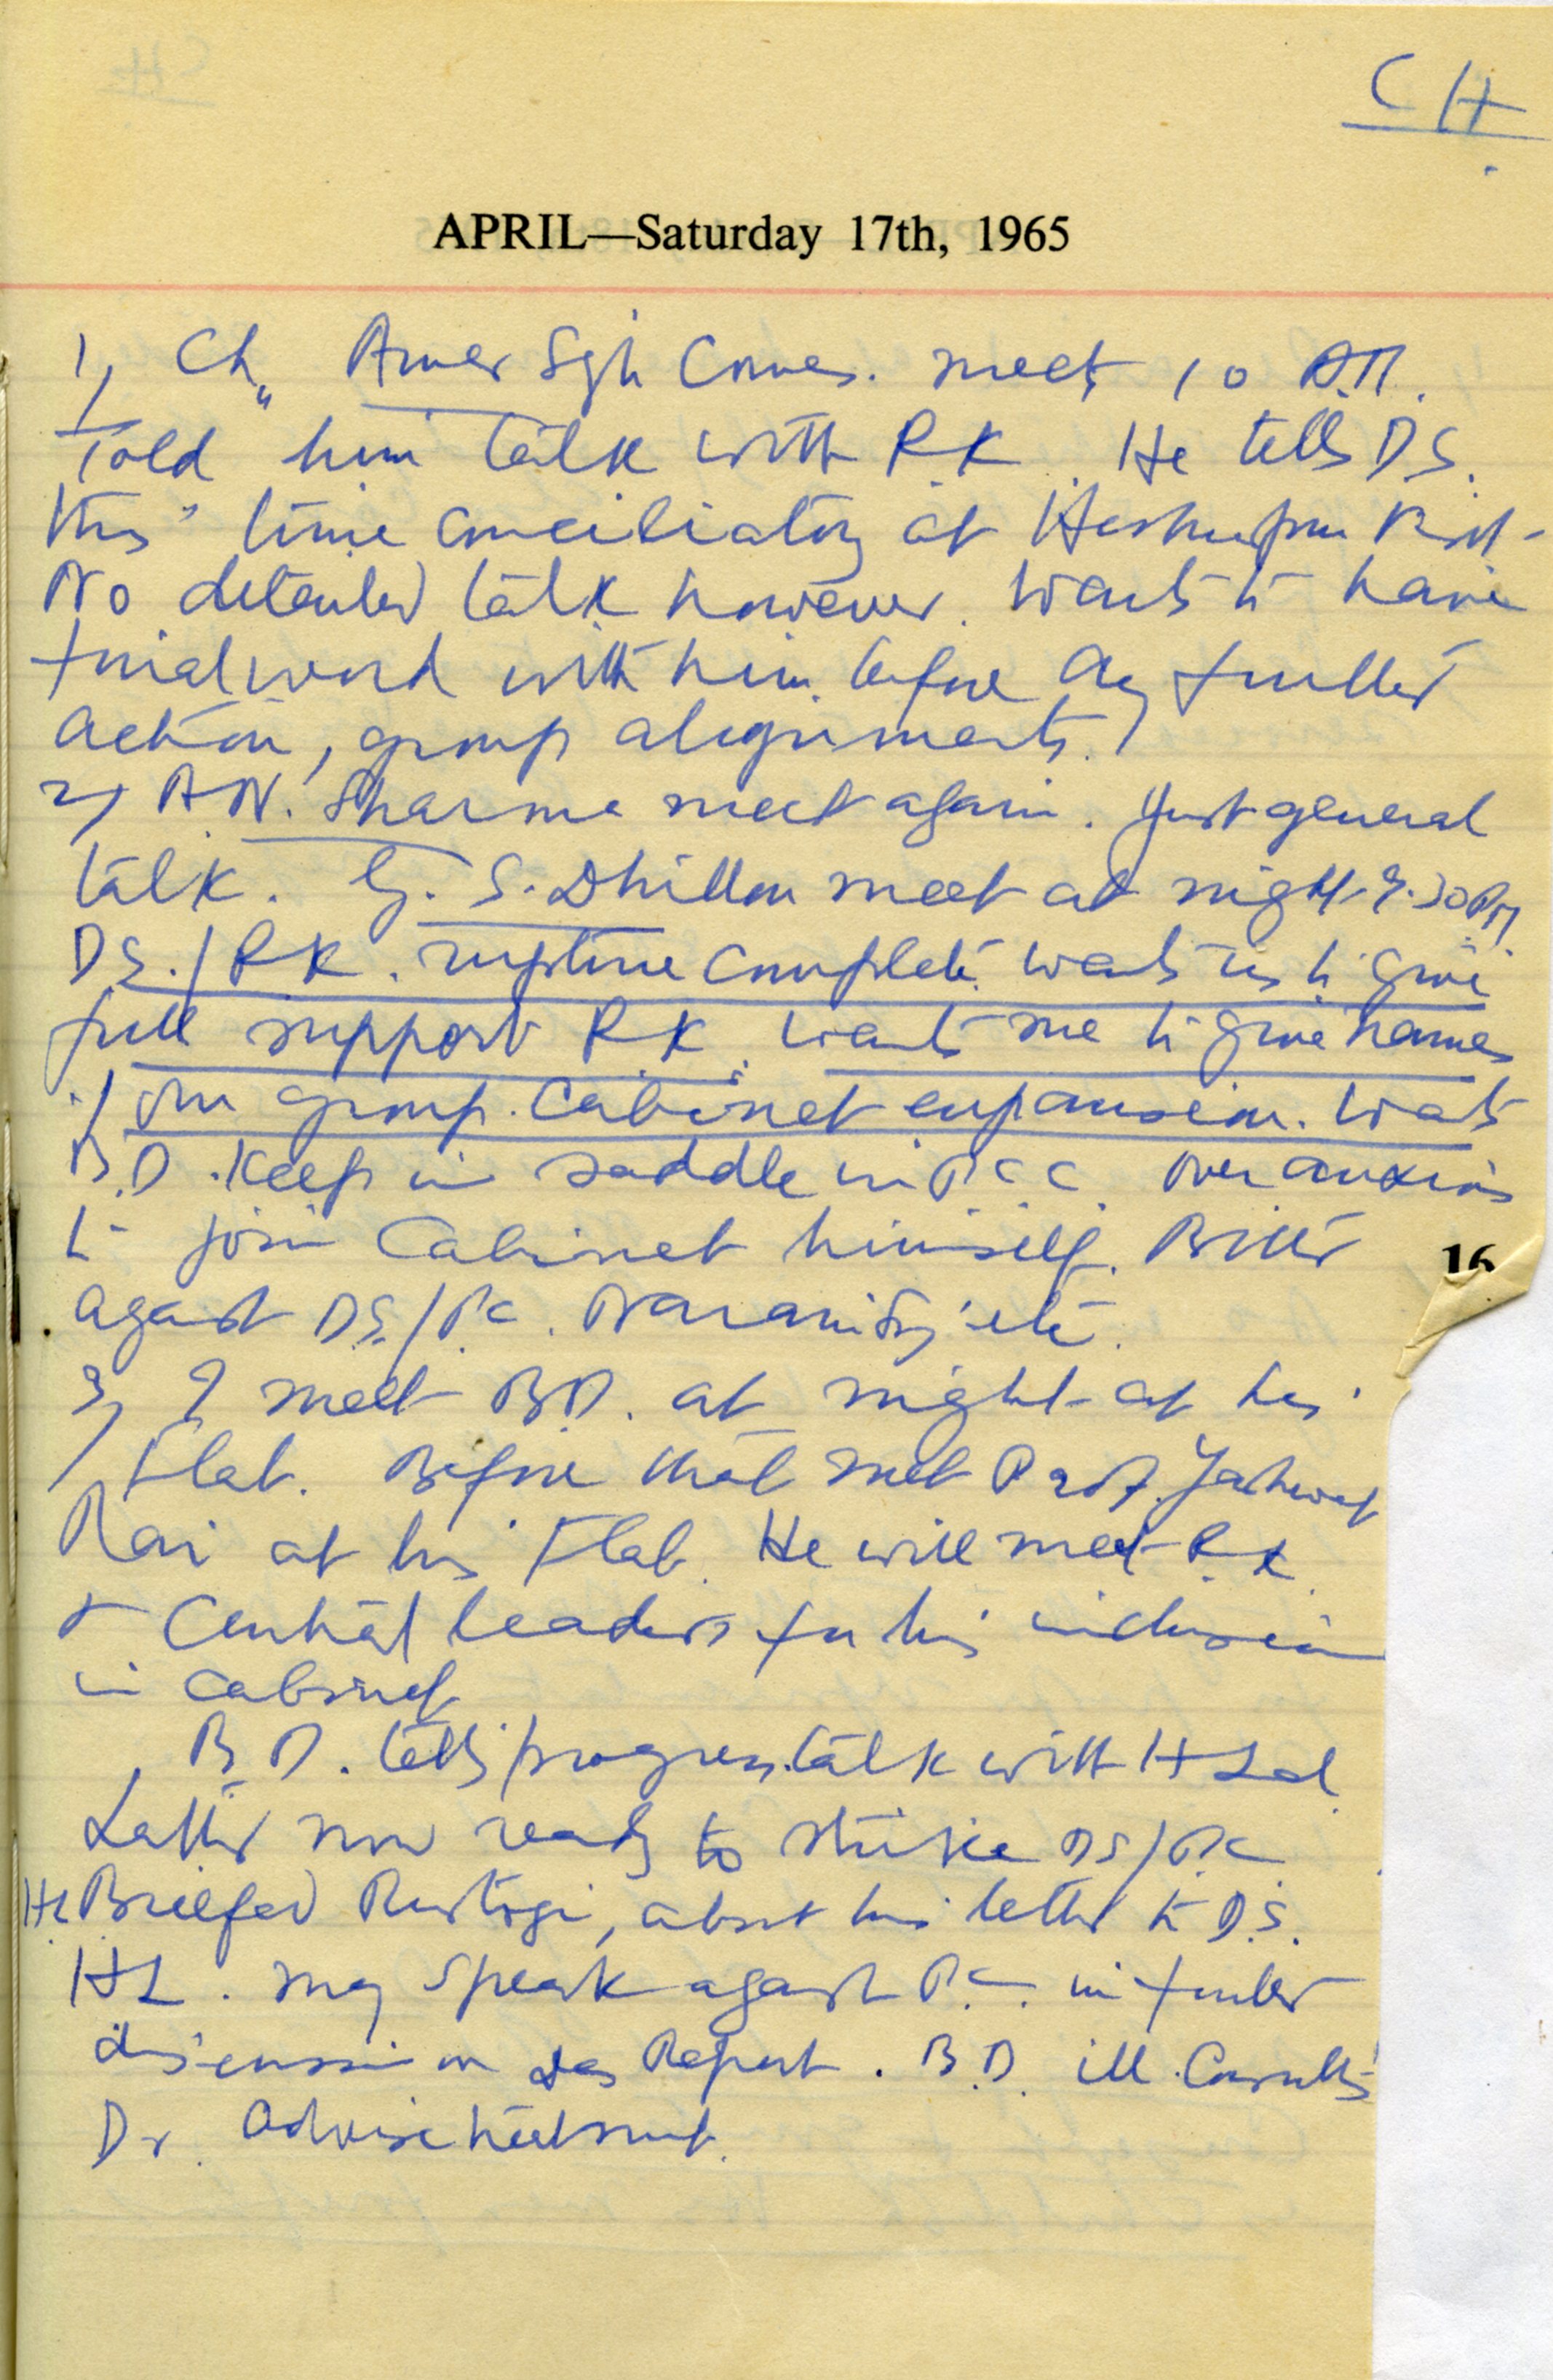 CH
APRIL—Saturday 17th, 1965
1/ Ch. Amer Sgh Comes. meet 10 A.M.
Told him talk with R.K. He tells D.S.
this time conciliatory at
No detailed talk however. Wants to have
final word with him before any further
action, group alignments.
2/ A.N. Sharma meet again. Just general
talk. G. S. Dhillon meet at night 9.30 PM
D.S./R.K. rupture complete. wants us to give
full support R.K. wants me to give names
of our group. Cabinet expansion. Wants
B.D. Keep in saddle in P.C.C. over anxious
to join Cabinet himself. Bitter
against D.S./P.C. etc.
3/ I meet B.D. at night at his
Flat. Before that met Prof. Yashwant
Rai at his Flat. He will meet R.K.
+ Central leaders for his inclusion
in cabinet
B.D. tells progress. talk with H Lal.
Latter now ready to strike DS/P.C
He Briefed Rustogi, about his letter to D.S.
HL. may speak against P.C. in further
discussion on Das Report. B.D. ill. Consults
Dr. Advise treatment.
16